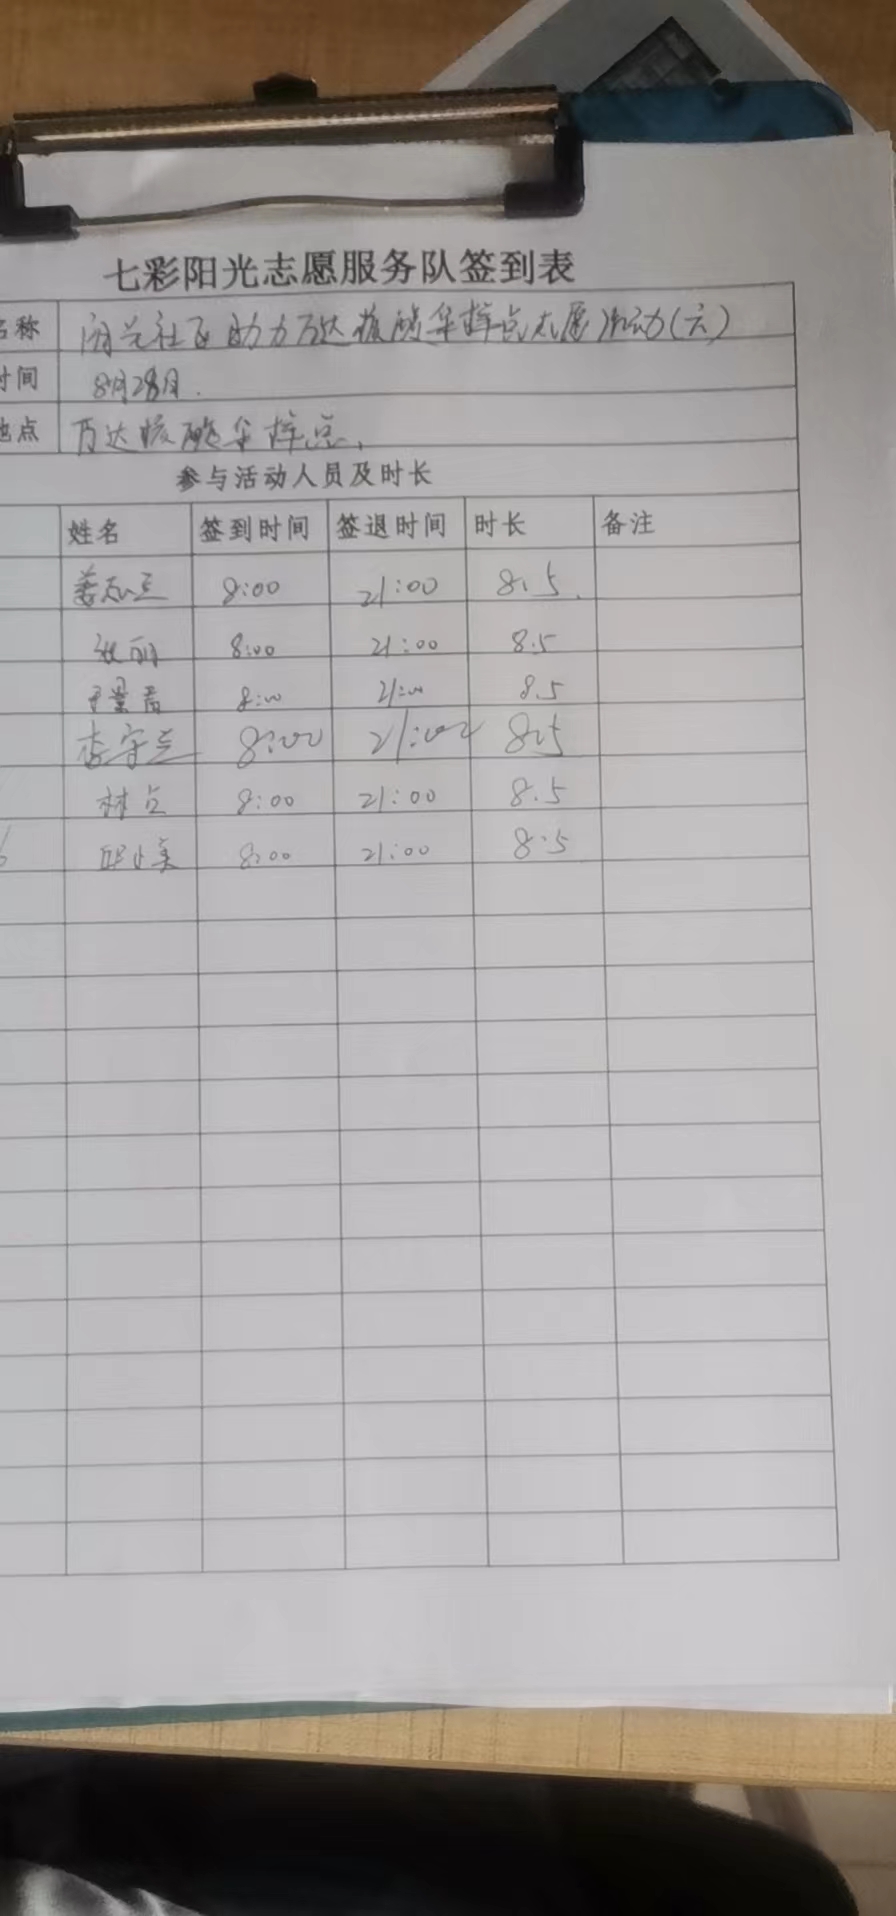 七彩阳光志愿服务队签到表
名称 社区助力万达核酸采样点志愿活动(六)
时间 8月28日.
地点 万达核酸采样点.
参与活动人员及时长
姓名 签到时间 签退时间 时长 备注
8:00 21:00 8.5
张丽 8:00 21:00 8.5
8:00 21:00 8.5
李守兰 8:00 21:00 8.5
林 8:00 21:00 8.5
6 邱 美 8:00 21:00 8.5